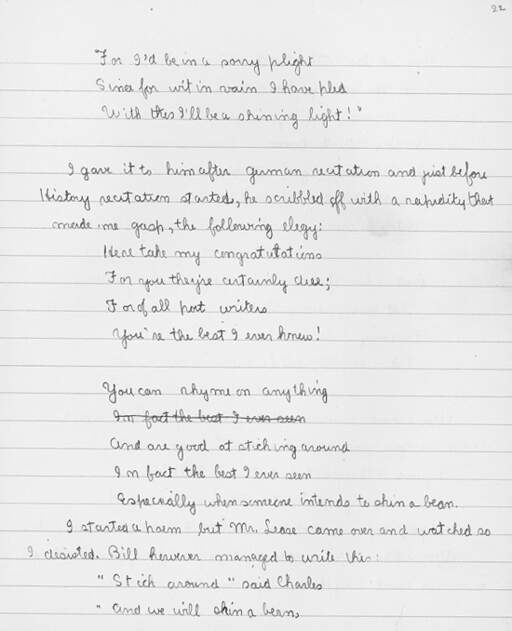 22
For I'd be in a sorry plight
Since for wit in vain I have pled
With this I'll be a shining light!"
I gave it to him after german recitation and just before
History recitation started, he scribbled off with a rapidity that
made me gasp, the following elegy:
Here take my congratutations
For you they're certainly due;
For of all poet writers
You're the best I ever knew!
You can rhyme on anything
In fact the best I ever seen
And are good at stiching around
In fact the best I ever seen
Especially when someone intends to skin a bean.
I started a poem but Mr. Lease came over and watched so
I desisted. Bill however managed to write this:
"Stich around" said Charles
"And we will skin a bean,